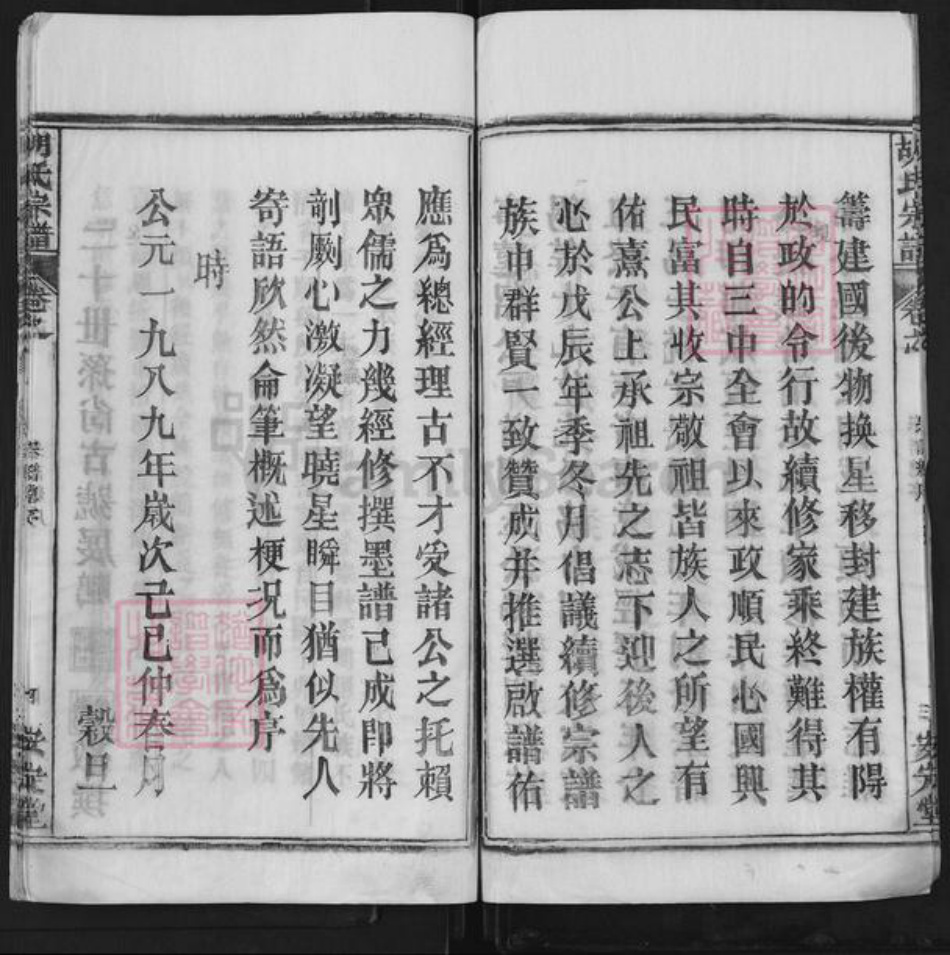 胡氏宗譜
籌建國後物換星移封建族權有閉
於政的令行故續修家乘終難得其
時自三中全會以來政順民心國興
民富其收宗敬祖皆族人之所望有
佑熹公上承祖先之志下迎後人之
心於戊辰年季冬月倡議續修宗譜
族中群賢一致贊成并推選啟譜佑
應為總經理古不才受諸公之托賴
眾儒之力幾經修撰墨譜己成即將
剞劂心激凝望曉星瞬目猶似先人
寄語欣然侖筆概述梗況而為序
時
公元一九八九年歲次己巳仲春月
穀旦
胡氏宗譜